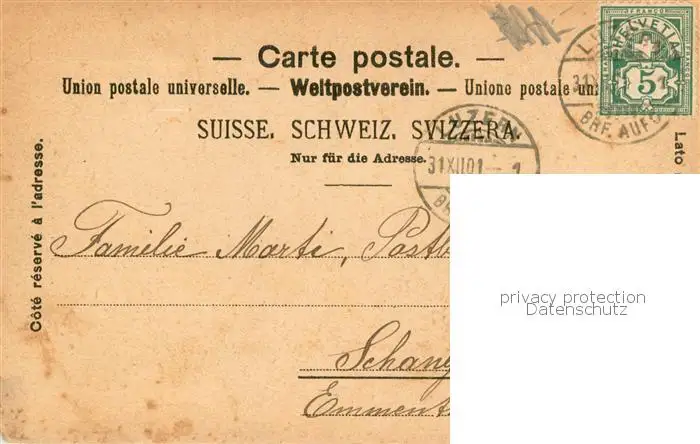 — Carte postale. —
Union postale universelle. — Weltpostverein. — Unione postale un
SUISSE. SCHWEIZ. SVIZZERA.
Nur für die Adresse.
Côté réservé à l'adresse.
Lato
FRANCO
HELVETIA
5
31XII
BRF. AUFG
LUZERN
31XII01 – 1
Familie Marti, Postb
Schang
Emment
privacy protection
Datenschutz